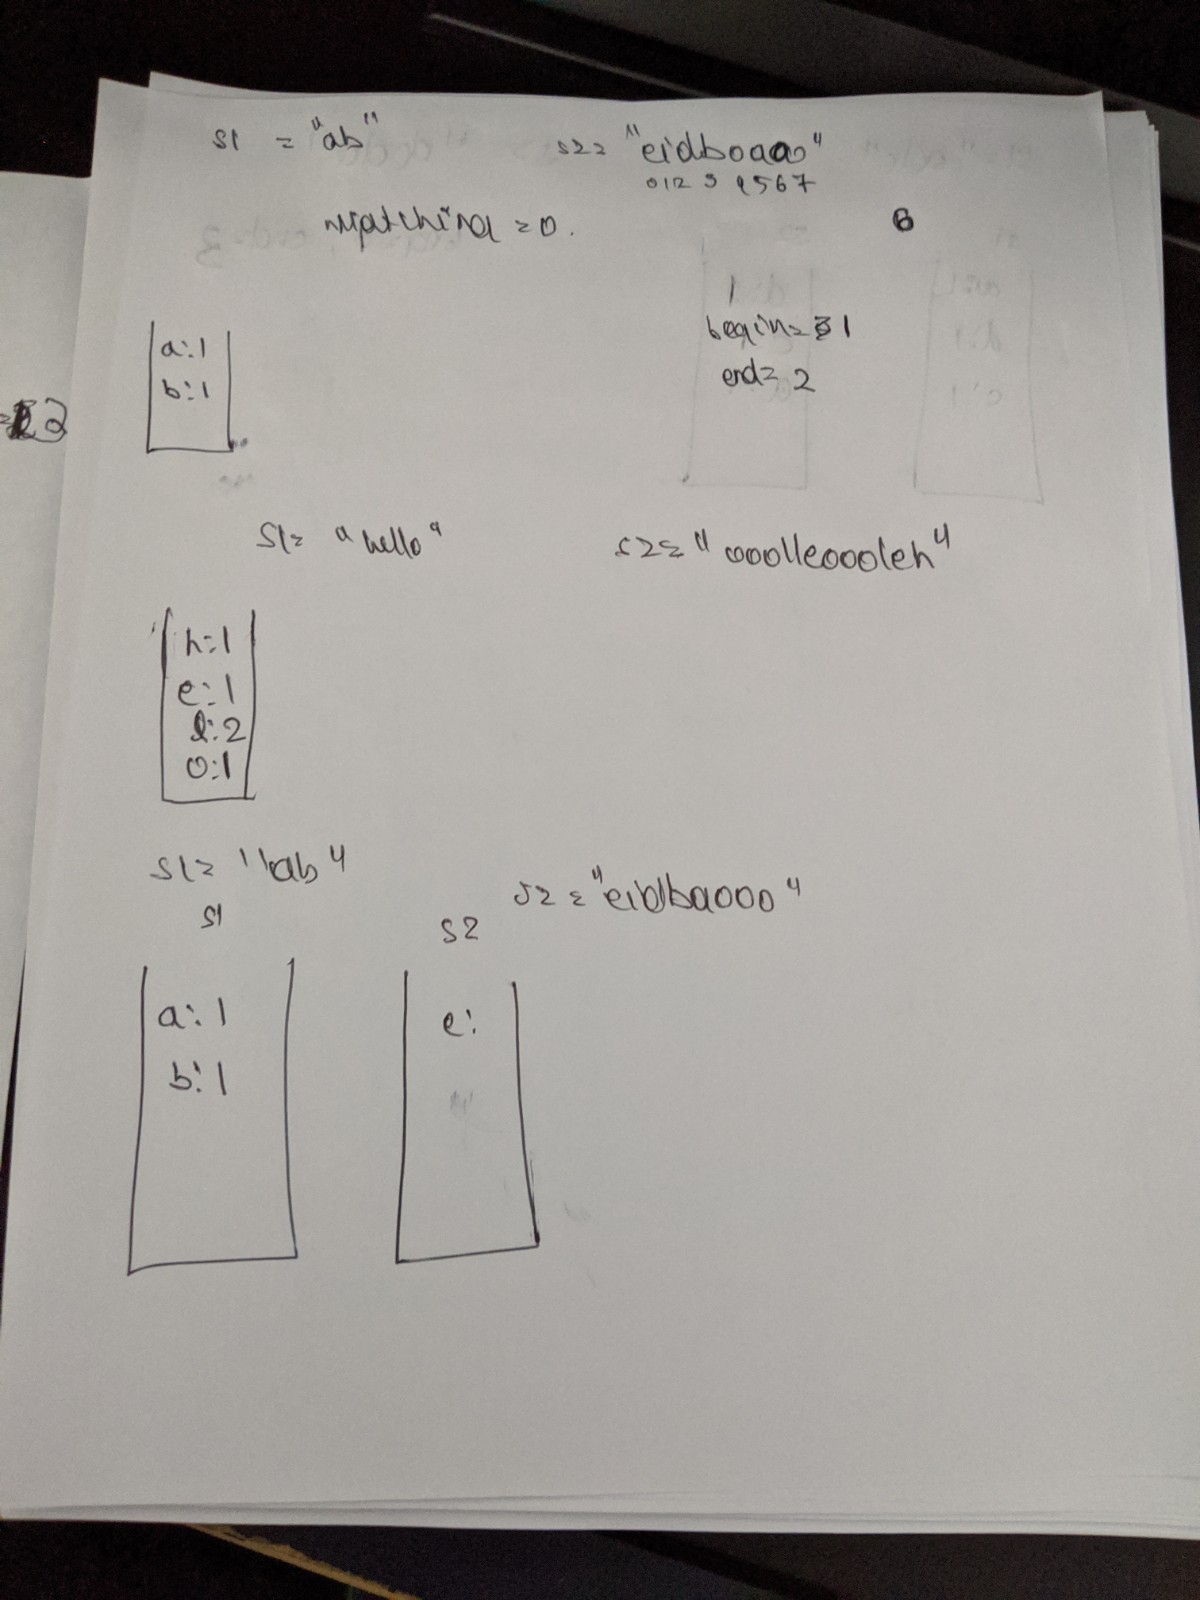 s1 = "ab" s2= "eidboaoo"
0 1 2 3 4 5 6 7
matching = 0. 6
1
begin= 1
end= 2
a:1
b:1
s1= "hello" s2= "ooolleoooleh"
h:1
e:1
l:2
o:1
s1= "ab" s2= "eidbaooo"
s1 s2
a:1 e:
b:1